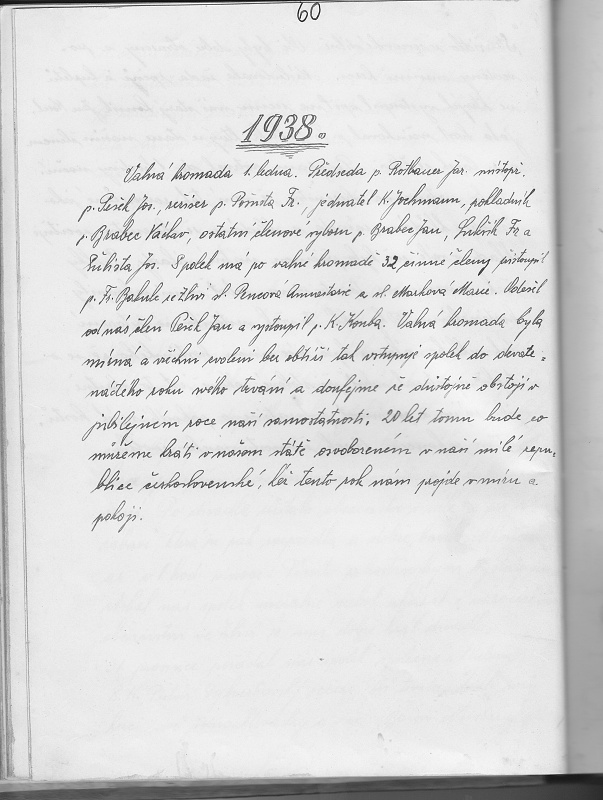 60
1938.
Valná hromada 1. ledna. Předseda p. Rotbauer Jar. místopř.
p. Pešek Jos., režiser p. Pošusta Fr., jednatel K. Jochmann, pokladník
p. Brabec Václav, ostatní členové výboru p. Brabec Jan, Fr. a
Jos. Spolek má po valné hromadě 32 činné členy přistoupil
p. Fr. Bakule sl. Pencová a sl. Marková Marie. Odešel
od nás člen Pešek Jan a vystoupil p. K. Valná hromada byla
a všichni zvoleni bez obtíží tak vstupuje spolek do devate-
náctého roku svého trvání a doufejme že důstojně obstojí v
jubilejném roce naší samostatnosti, 20 let tomu bude co
můžeme hráti v našem státě osvobozeném v naší milé repu-
blice československé, kéž tento rok nám projde v míru a
pokoji.